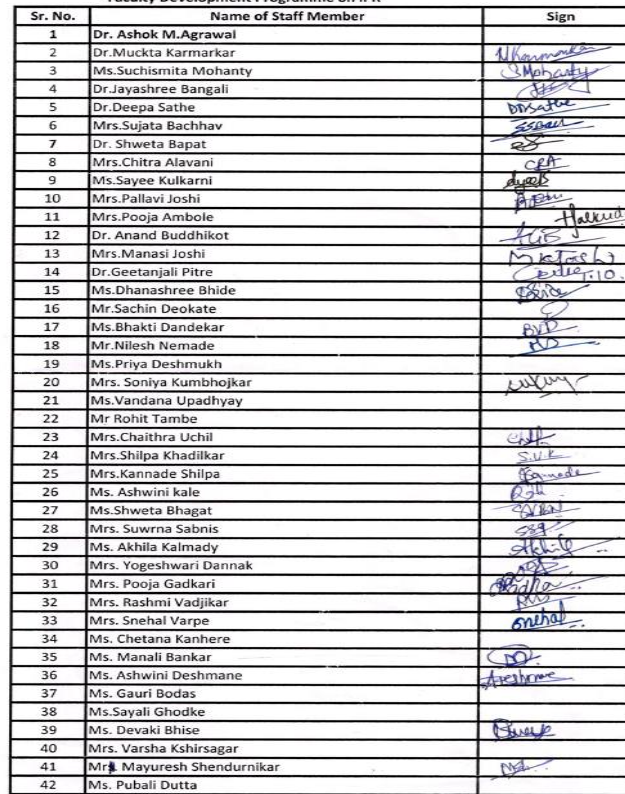 Faculty Development Programme on IPR
Sr. No. Name of Staff Member Sign
1 Dr. Ashok M.Agrawal
2 Dr.Muckta Karmarkar
3 Ms.Suchismita Mohanty SMohanty
4 Dr.Jayashree Bangali
5 Dr.Deepa Sathe DDSathe
6 Mrs.Sujata Bachhav
7 Dr. Shweta Bapat
8 Mrs.Chitra Alavani CPA
9 Ms.Sayee Kulkarni
10 Mrs.Pallavi Joshi
11 Mrs.Pooja Ambole
12 Dr. Anand Buddhikot AGB
13 Mrs.Manasi Joshi
14 Dr.Geetanjali Pitre
15 Ms.Dhanashree Bhide
16 Mr.Sachin Deokate
17 Ms.Bhakti Dandekar BVD
18 Mr.Nilesh Nemade
19 Ms.Priya Deshmukh
20 Mrs. Soniya Kumbhojkar
21 Ms.Vandana Upadhyay
22 Mr Rohit Tambe
23 Mrs.Chaithra Uchil
24 Mrs.Shilpa Khadilkar S.V.K
25 Mrs.Kannade Shilpa
26 Ms. Ashwini kale
27 Ms.Shweta Bhagat
28 Mrs. Suwrna Sabnis
29 Ms. Akhila Kalmady Akhila
30 Mrs. Yogeshwari Dannak
31 Mrs. Pooja Gadkari
32 Mrs. Rashmi Vadjikar
33 Mrs. Snehal Varpe Snehal
34 Ms. Chetana Kanhere
35 Ms. Manali Bankar
36 Ms. Ashwini Deshmane
37 Ms. Gauri Bodas
38 Ms.Sayali Ghodke
39 Ms. Devaki Bhise
40 Mrs. Varsha Kshirsagar
41 Mr. Mayuresh Shendurnikar
42 Ms. Pubali Dutta